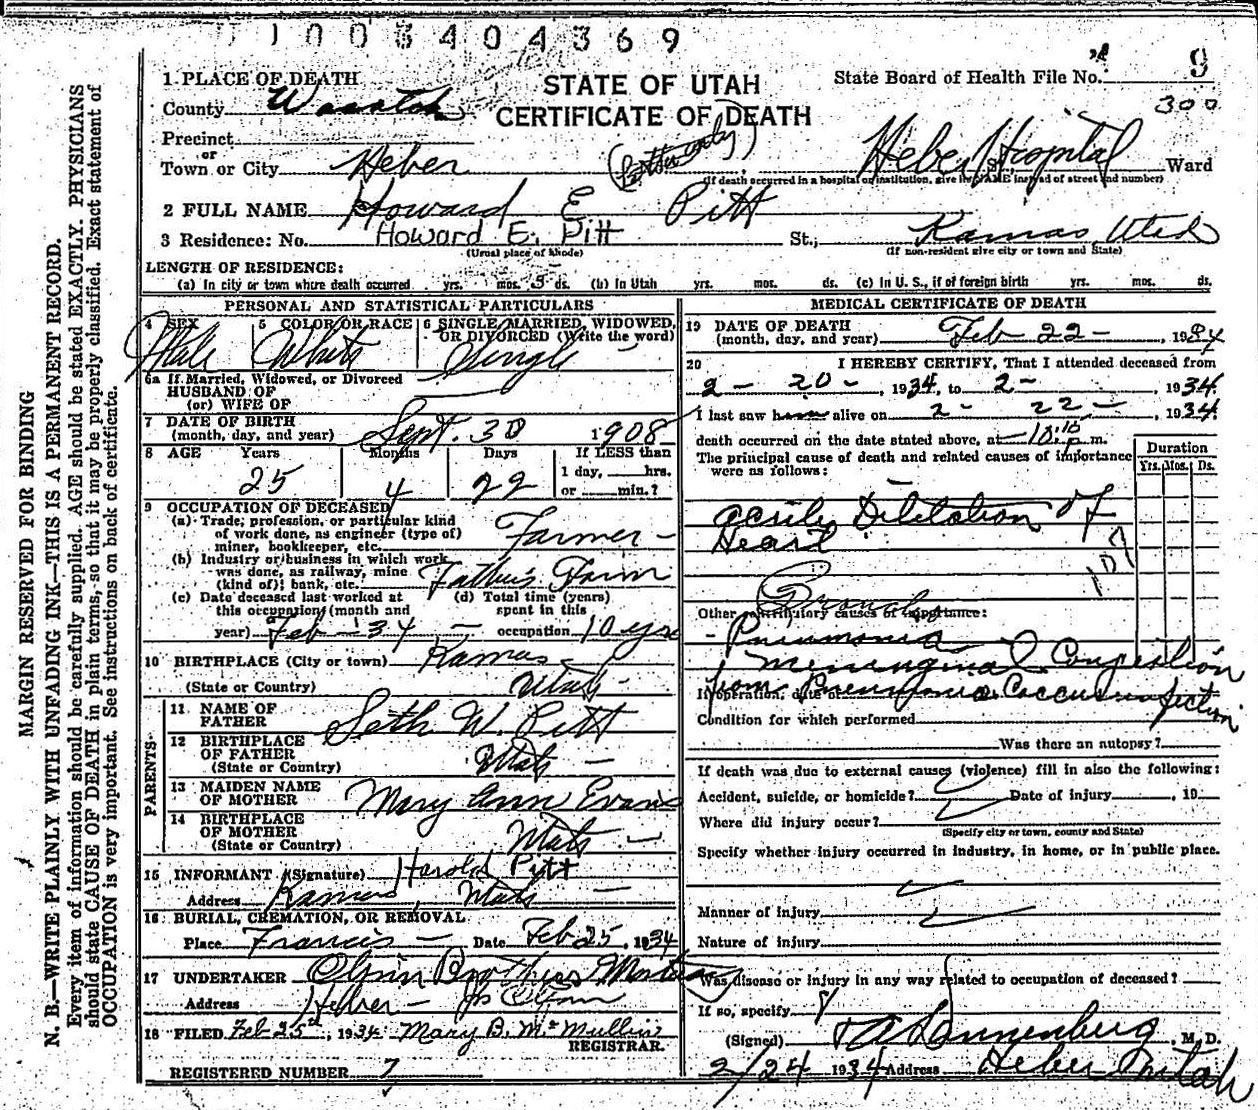 1003404369
9
300
STATE OF UTAH
CERTIFICATE OF DEATH
State Board of Health File No.
1 PLACE OF DEATH
County Wasatch
Precinct
or
Town or City Heber
Heber Hospital St., Ward
(If death occurred in a hospital or institution, give its NAME instead of street and number)
2 FULL NAME Howard E Pitt
3 Residence: No. Howard E. Pitt St., Kamas, Utah
(Usual place of abode) (If non-resident give city or town and State)
LENGTH OF RESIDENCE:
(a) In city or town where death occurred yrs. mos. 3 ds. (b) In Utah yrs. mos. ds. (c) In U. S., if of foreign birth yrs. mos. ds.
PERSONAL AND STATISTICAL PARTICULARS
4 SEX Male
5 COLOR OR RACE White
6 SINGLE, MARRIED, WIDOWED, OR DIVORCED (Write the word) Single
6a If Married, Widowed, or Divorced
HUSBAND OF
(or) WIFE OF
7 DATE OF BIRTH
(month, day, and year) Sept. 30 1908
8 AGE Years Months Days If LESS than
25 4 22 1 day, hrs.
or min.?
9 OCCUPATION OF DECEASED
(a) Trade, profession, or particular kind
of work done, as engineer (type of)
miner, bookkeeper, etc. Farmer
(b) Industry or business in which work
was done, as railway, mine
(kind of) bank, etc. Father's Farm
(c) Date deceased last worked at (d) Total time (years)
this occupation (month and spent in this
year) Feb - 34 - occupation 10 yrs
10 BIRTHPLACE (City or town) Kamas
(State or Country) Utah
PARENTS
11 NAME OF
FATHER Seth W. Pitt
12 BIRTHPLACE
OF FATHER
(State or Country) Utah -
13 MAIDEN NAME
OF MOTHER Mary Ann Evans
14 BIRTHPLACE
OF MOTHER
(State or Country) Utah -
15 INFORMANT (Signature) Harold Pitt
Address Kamas, Utah -
16 BURIAL, CREMATION, OR REMOVAL
Place Francis - Date Feb 25, 1934
17 UNDERTAKER Olpin Brothers
Address Heber -
18 FILED Feb 25, 1934 Mary B. McMullin
REGISTRAR.
REGISTERED NUMBER 7
MEDICAL CERTIFICATE OF DEATH
19 DATE OF DEATH
(month, day, and year) Feb 22 -, 1934
20 I HEREBY CERTIFY, That I attended deceased from
2 - 20 -, 1934, to 2 - , 1934.
I last saw him alive on 2 - 22 -, 1934.
death occurred on the date stated above, at 10:10 p.m.
The principal cause of death and related causes of importance
were as follows:
Duration
Yrs. Mos. Ds.
Dilatation of
Heart
107
Other contributory causes of importance:
Pneumonia
Meninginal Congestion
from Pneumonia Coccus infection
If operation, date of
Condition for which performed
Was there an autopsy?
If death was due to external causes (violence) fill in also the following:
Accident, suicide, or homicide? Date of injury , 19
Where did injury occur?
(Specify city or town, county and State)
Specify whether injury occurred in industry, in home, or in public place.
Manner of injury
Nature of injury
Was disease or injury in any way related to occupation of deceased?
If so, specify
(Signed) , M. D.
2/24 1934 Address Heber Utah
MARGIN RESERVED FOR BINDING
N. B.—WRITE PLAINLY WITH UNFADING INK—THIS IS A PERMANENT RECORD.
Every item of information should be carefully supplied. AGE should be stated EXACTLY. PHYSICIANS
should state CAUSE OF DEATH in plain terms, so that it may be properly classified. Exact statement of
OCCUPATION is very important. See instructions on back of certificate.